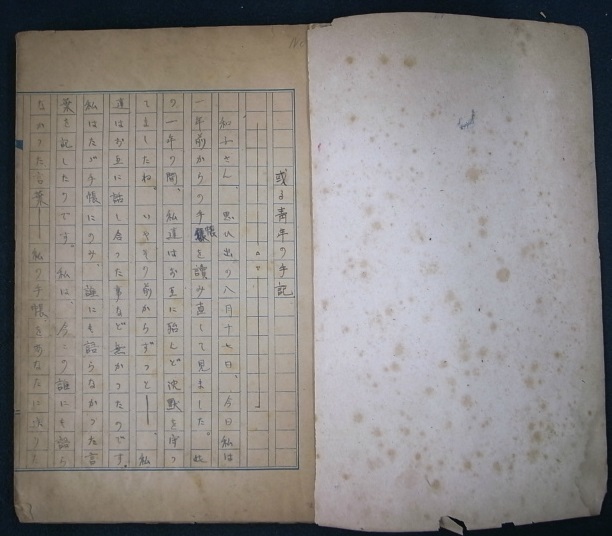 或る青年の手記
和子さん 思ひ出の八月十七日、今日私は
一年前からの手帳を讀み直して見ました。此
の一年の間、私達はお互に殆んど沈默を守つ
てましたね。いやその前からずつと――私
達はお互に話し合つた事など無かつたのです。
私はたゞ手帳にのみ、誰にも語らなかつた言
葉を記したのです。私は、今この誰にも語ら
なかつた言葉――私の手帳をあなたに